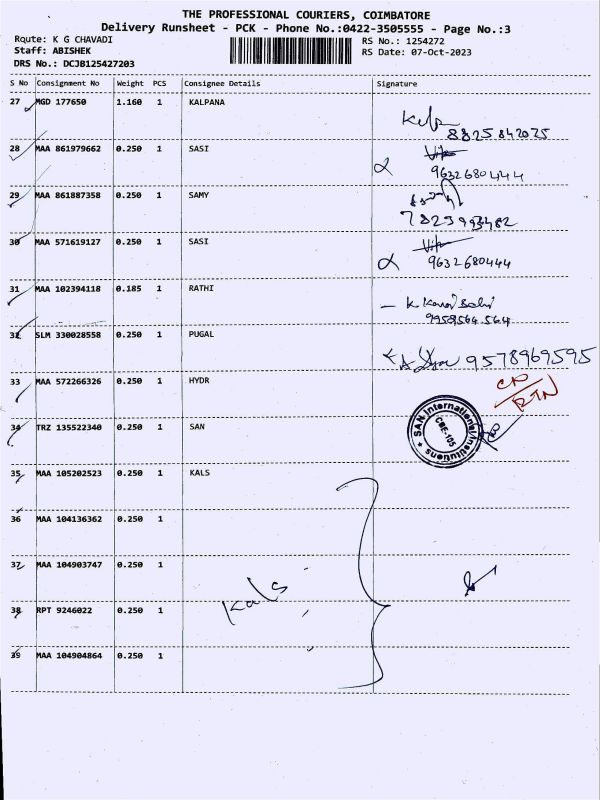 THE PROFESSIONAL COURIERS, COIMBATORE
Delivery Runsheet - PCK - Phone No.:0422-3505555 - Page No.:3
Route: K G CHAVADI
RS No.: 1254272
Staff: ABISHEK
RS Date: 07-Oct-2023
DRS No.: DCJB125427203
S No Consignment No Weight PCS Consignee Details Signature
27 MGD 177650 1.160 1 KALPANA
8825842025
28 MAA 861979662 0.250 1 SASI
9632680444
29 MAA 861887358 0.250 1 SAMY
7825993482
30 MAA 571619127 0.250 1 SASI
9632680444
31 MAA 102394118 0.185 1 RATHI
9959564564
32 SLM 330028558 0.250 1 PUGAL
9578969595
33 MAA 572266326 0.250 1 HYDR
RTN
34 TRZ 135522340 0.250 1 SAN
SAN International Institutions
CBE-105
35 MAA 105202523 0.250 1 KALS
36 MAA 104136362 0.250 1
37 MAA 104903747 0.250 1
Kals
38 RPT 9246022 0.250 1
39 MAA 104904864 0.250 1